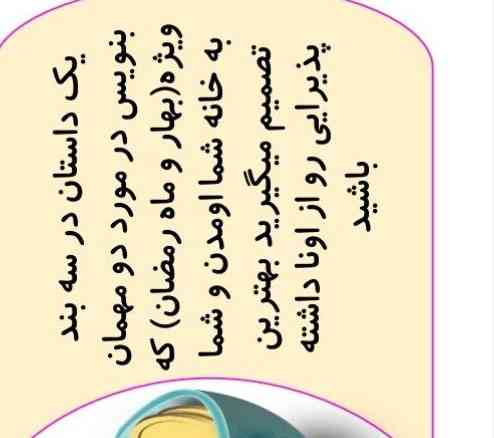 یک داستان در سه بند
بنویس در مورد دو مهمان
ویژه(بهار و ماه رمضان) که
به خانه شما اومدن و شما
تصمیم میگیرید بهترین
پذیرایی رو از اونا داشته
باشید